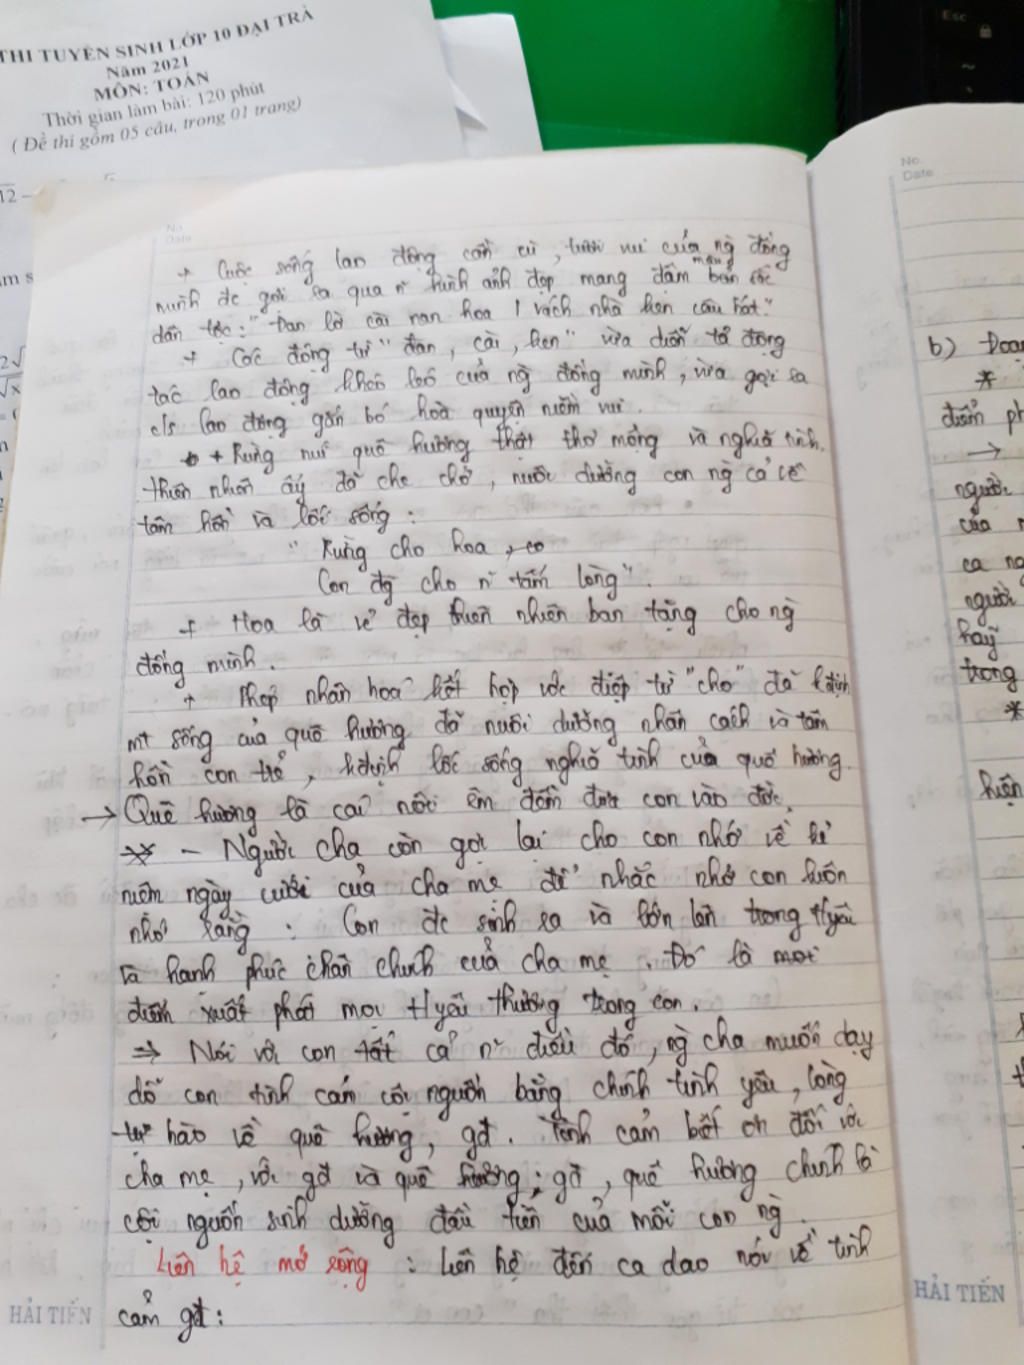 THI TUYỂN SINH LỚP 10 ĐẠI TRÀ
Năm 2021
MÔN: TOÁN
Thời gian làm bài: 120 phút
( Đề thi gồm 05 câu, trong 01 trang)
No.
Date
+ Cuộc sống lao động cần cù, tươi vui của ng đồng
mình đc gợi ra qua n~ hình ảnh đẹp mang đậm màu bản sắc
dân tộc: "Đan lờ cài nan hoa / vách nhà ken câu hát."
+ Các động từ "đan, cài, ken" vừa diễn tả động
tác lao động khéo léo của ng đồng mình, vừa gợi ra
c/s lao động gắn bó hoà quyện niềm vui.
+ Rừng núi quê hương thật thơ mộng và nghĩa tình.
thiên nhiên ấy đã che chở, nuôi dưỡng con ng cả về
tâm hồn và lối sống:
" Rừng cho hoa,
Con đg cho n~ tấm lòng".
+ Hoa là vẻ đẹp thiên nhiên ban tặng cho ng
đồng mình.
+ Phép nhân hoá kết hợp với điệp từ "cho" đã k.định
mt sống của quê hương đã nuôi dưỡng nhân cách và tâm
hồn con trẻ, k.định lối sống nghĩa tình của quê hương.
→ Quê hương là cái nôi êm đềm đưa con vào đời.
- Người cha còn gợi lại cho con nhớ về kỉ
niệm ngày cưới của cha mẹ để nhắc nhở con luôn
nhớ rằng: Con đc sinh ra và lớn lên trong tỉyêu
và hạnh phúc chân chính của cha mẹ. Đó là mọi
điểm xuất phát mọi tỉyêu thương trong con.
⇒ Nói với con tất cả n~ điều đó, ng cha muốn dạy
dỗ con tình cảm cội nguồn bằng chính tình yêu, lòng
tự hào về quê hương, gđ. Tình cảm biết ơn đối với
cha mẹ, với gđ và quê hương; gđ, quê hương chính là
cội nguồn sinh dưỡng đầu tiên của mỗi con ng.
Liên hệ mở rộng: Liên hệ đến ca dao nói về tình
cảm gđ:
HẢI TIẾN
No.
Date
b) Đoạn
*
điểm ph
→
người
của
ca ng
người
hãy
trong
*
hiện
HẢI TIẾN
Esc